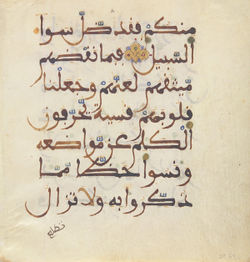 منكم فقد ضل سوا
السبيل فبما نقضهم
ميثقهم لعنهم وجعلنا
قلوبهم قسية يحرفون
الكلم عن مواضعه
ونسوا حظا مما
ذكروا به ولا تزال
تطلع